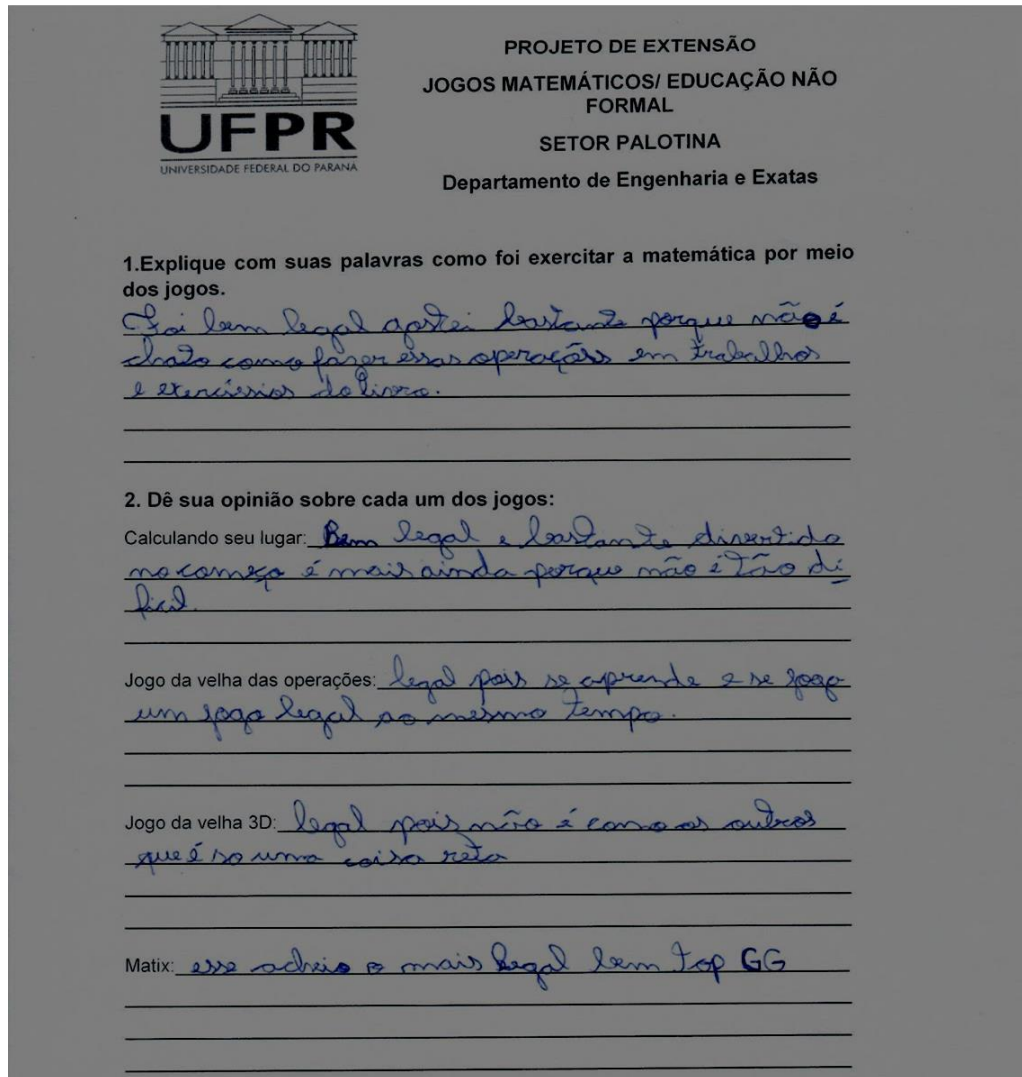 UFPR
UNIVERSIDADE FEDERAL DO PARANÁ
PROJETO DE EXTENSÃO
JOGOS MATEMÁTICOS/ EDUCAÇÃO NÃO
FORMAL
SETOR PALOTINA
Departamento de Engenharia e Exatas
1.Explique com suas palavras como foi exercitar a matemática por meio
dos jogos.
Foi bem legal gostei bastante porque não é
chato como fazer essas operações em trabalhos
e exercísios do livro.
2. Dê sua opinião sobre cada um dos jogos:
Calculando seu lugar: Bem legal e bastante divertido
no começo é mais ainda porque não é tão di
ficil.
Jogo da velha das operações: legal pois se aprende e se joga
um jogo legal ao mesmo tempo.
Jogo da velha 3D: legal pois não é como os outros
que é so uma coisa reta
Matix: esse acheio o mais legal bem top GG